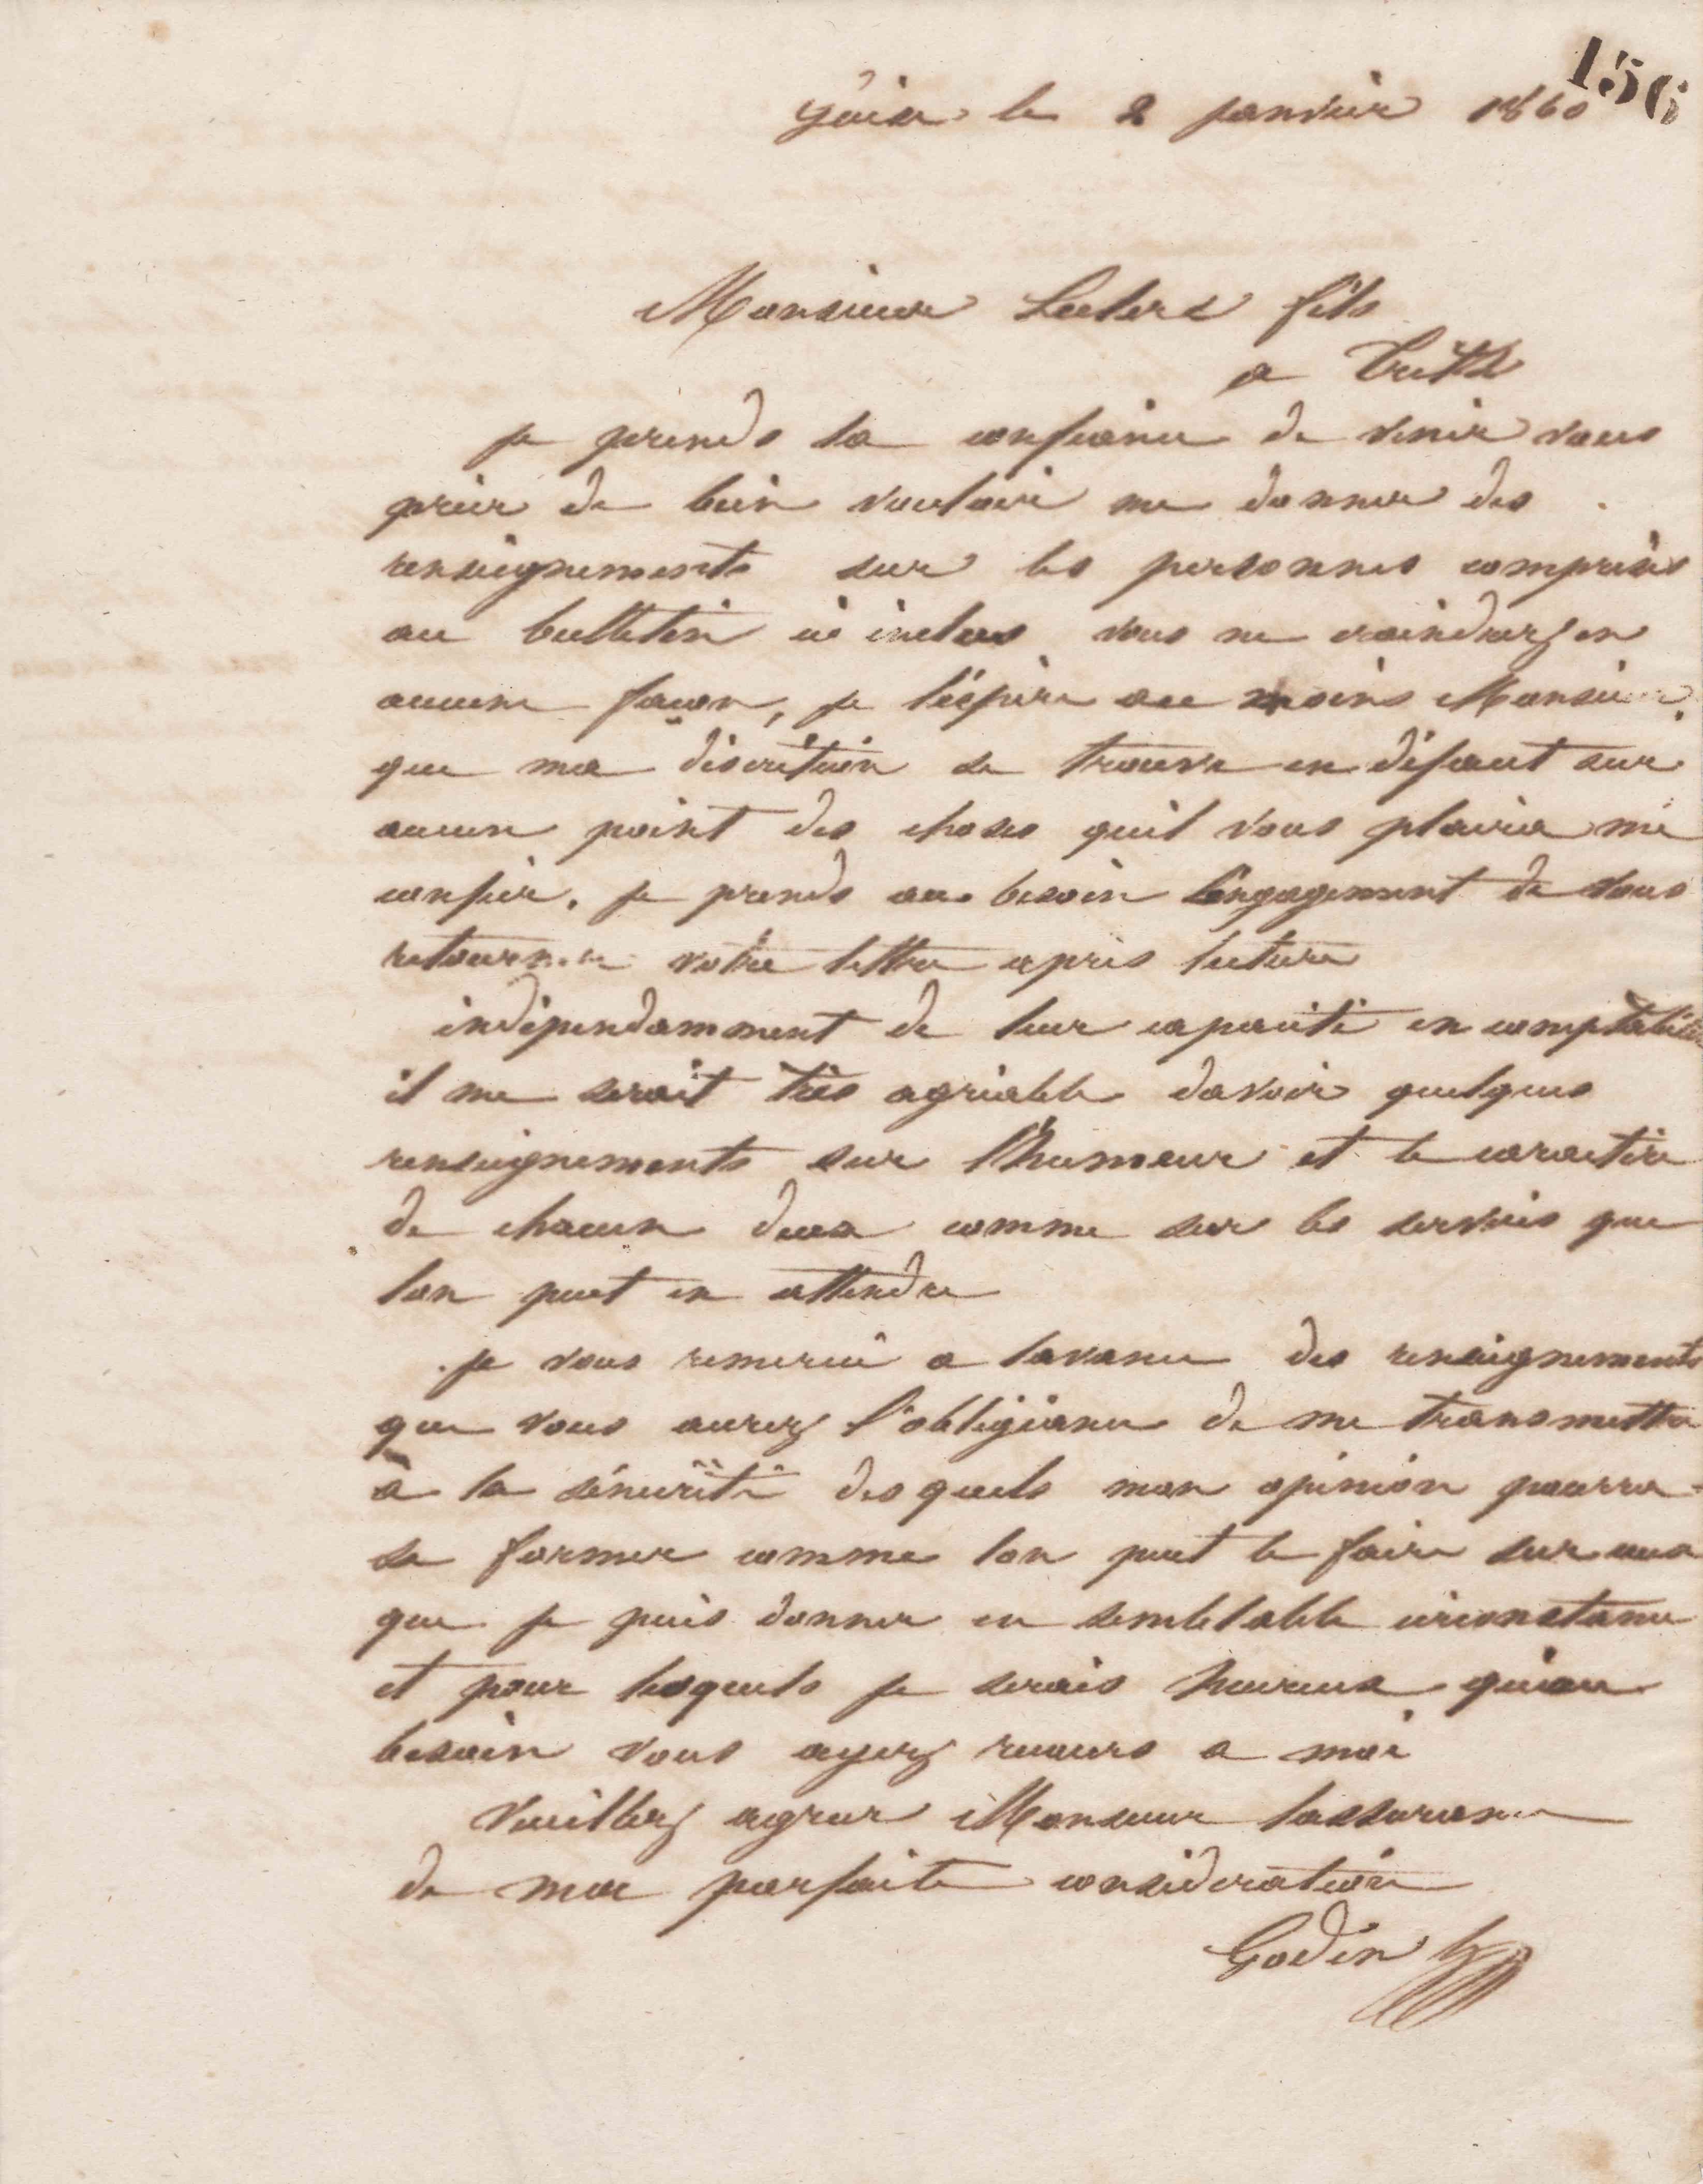 156
Guise le 2 janvier 1860
Monsieur Leclerc fils
a Trith
je prends la confiance de venir vous
prier de bien vouloir me donner des
renseignements sur les personnes comprises
au bulletin ci inclus vous ne craindrez en
aucune façon, je l'éspère au moins Monsieur
que ma discrétion se trouve en défaut sur
aucun point des choses quil vous plaira me
confier. je prends au besoin l'engagement de vous
retourner votre lettre après lecture
indépendamment de leur capacité en comptabilité
il me serait très agréable davoir quelques
renseignements sur l'humeur et le caractère
de chacun deux comme sur les services que
lon peut en attendre
je vous remercie a lavance des renseignements
que vous aurez l'obligeance de me transmettre
à la sincérité desquels mon opinion pourra
se former comme lon peut le faire sur ceux
que je puis donner en semblable circonstance
et pour lesquels je serais heureux quau
besoin vous ayez recours a moi
Veuillez agreer Monsieur lassurance
de ma parfaite consideration
Godin